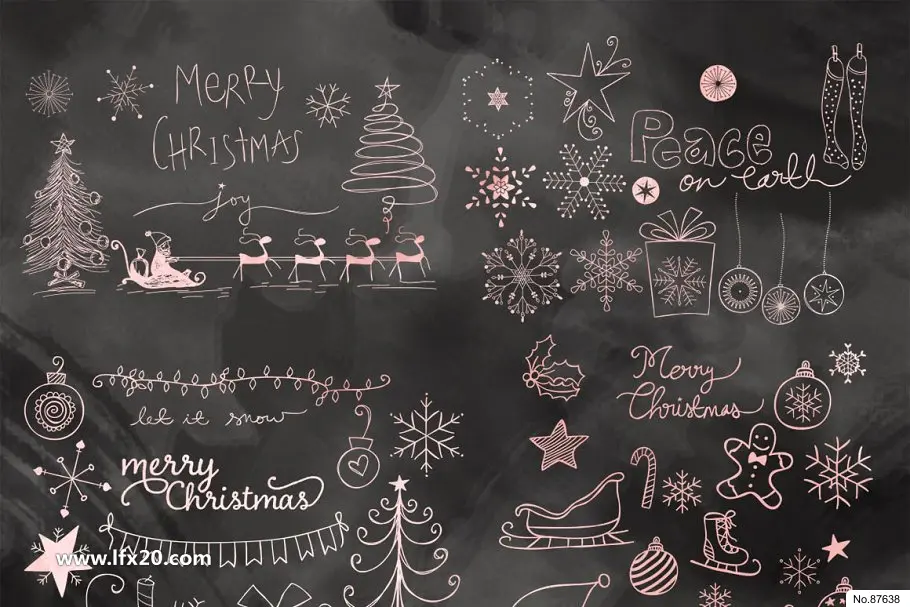 MERRY
CHRISTMAS
joy
Peace
on earth
let it snow
merry
Christmas
Merry
Christmas
www.lfx20.com
No.87638